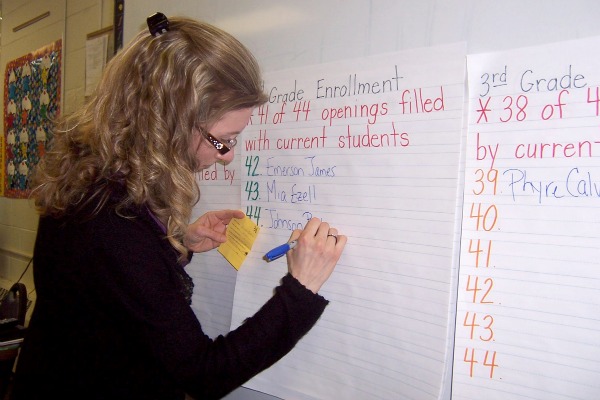 Grade Enrollment
* 41 of 44 openings filled
with current students
42. Emerson James
43. Mia Ezell
44. Johnson
filled by
3rd Grade
* 38 of 4
by curren
39. Phyre Calv
40.
41.
42.
43.
44.